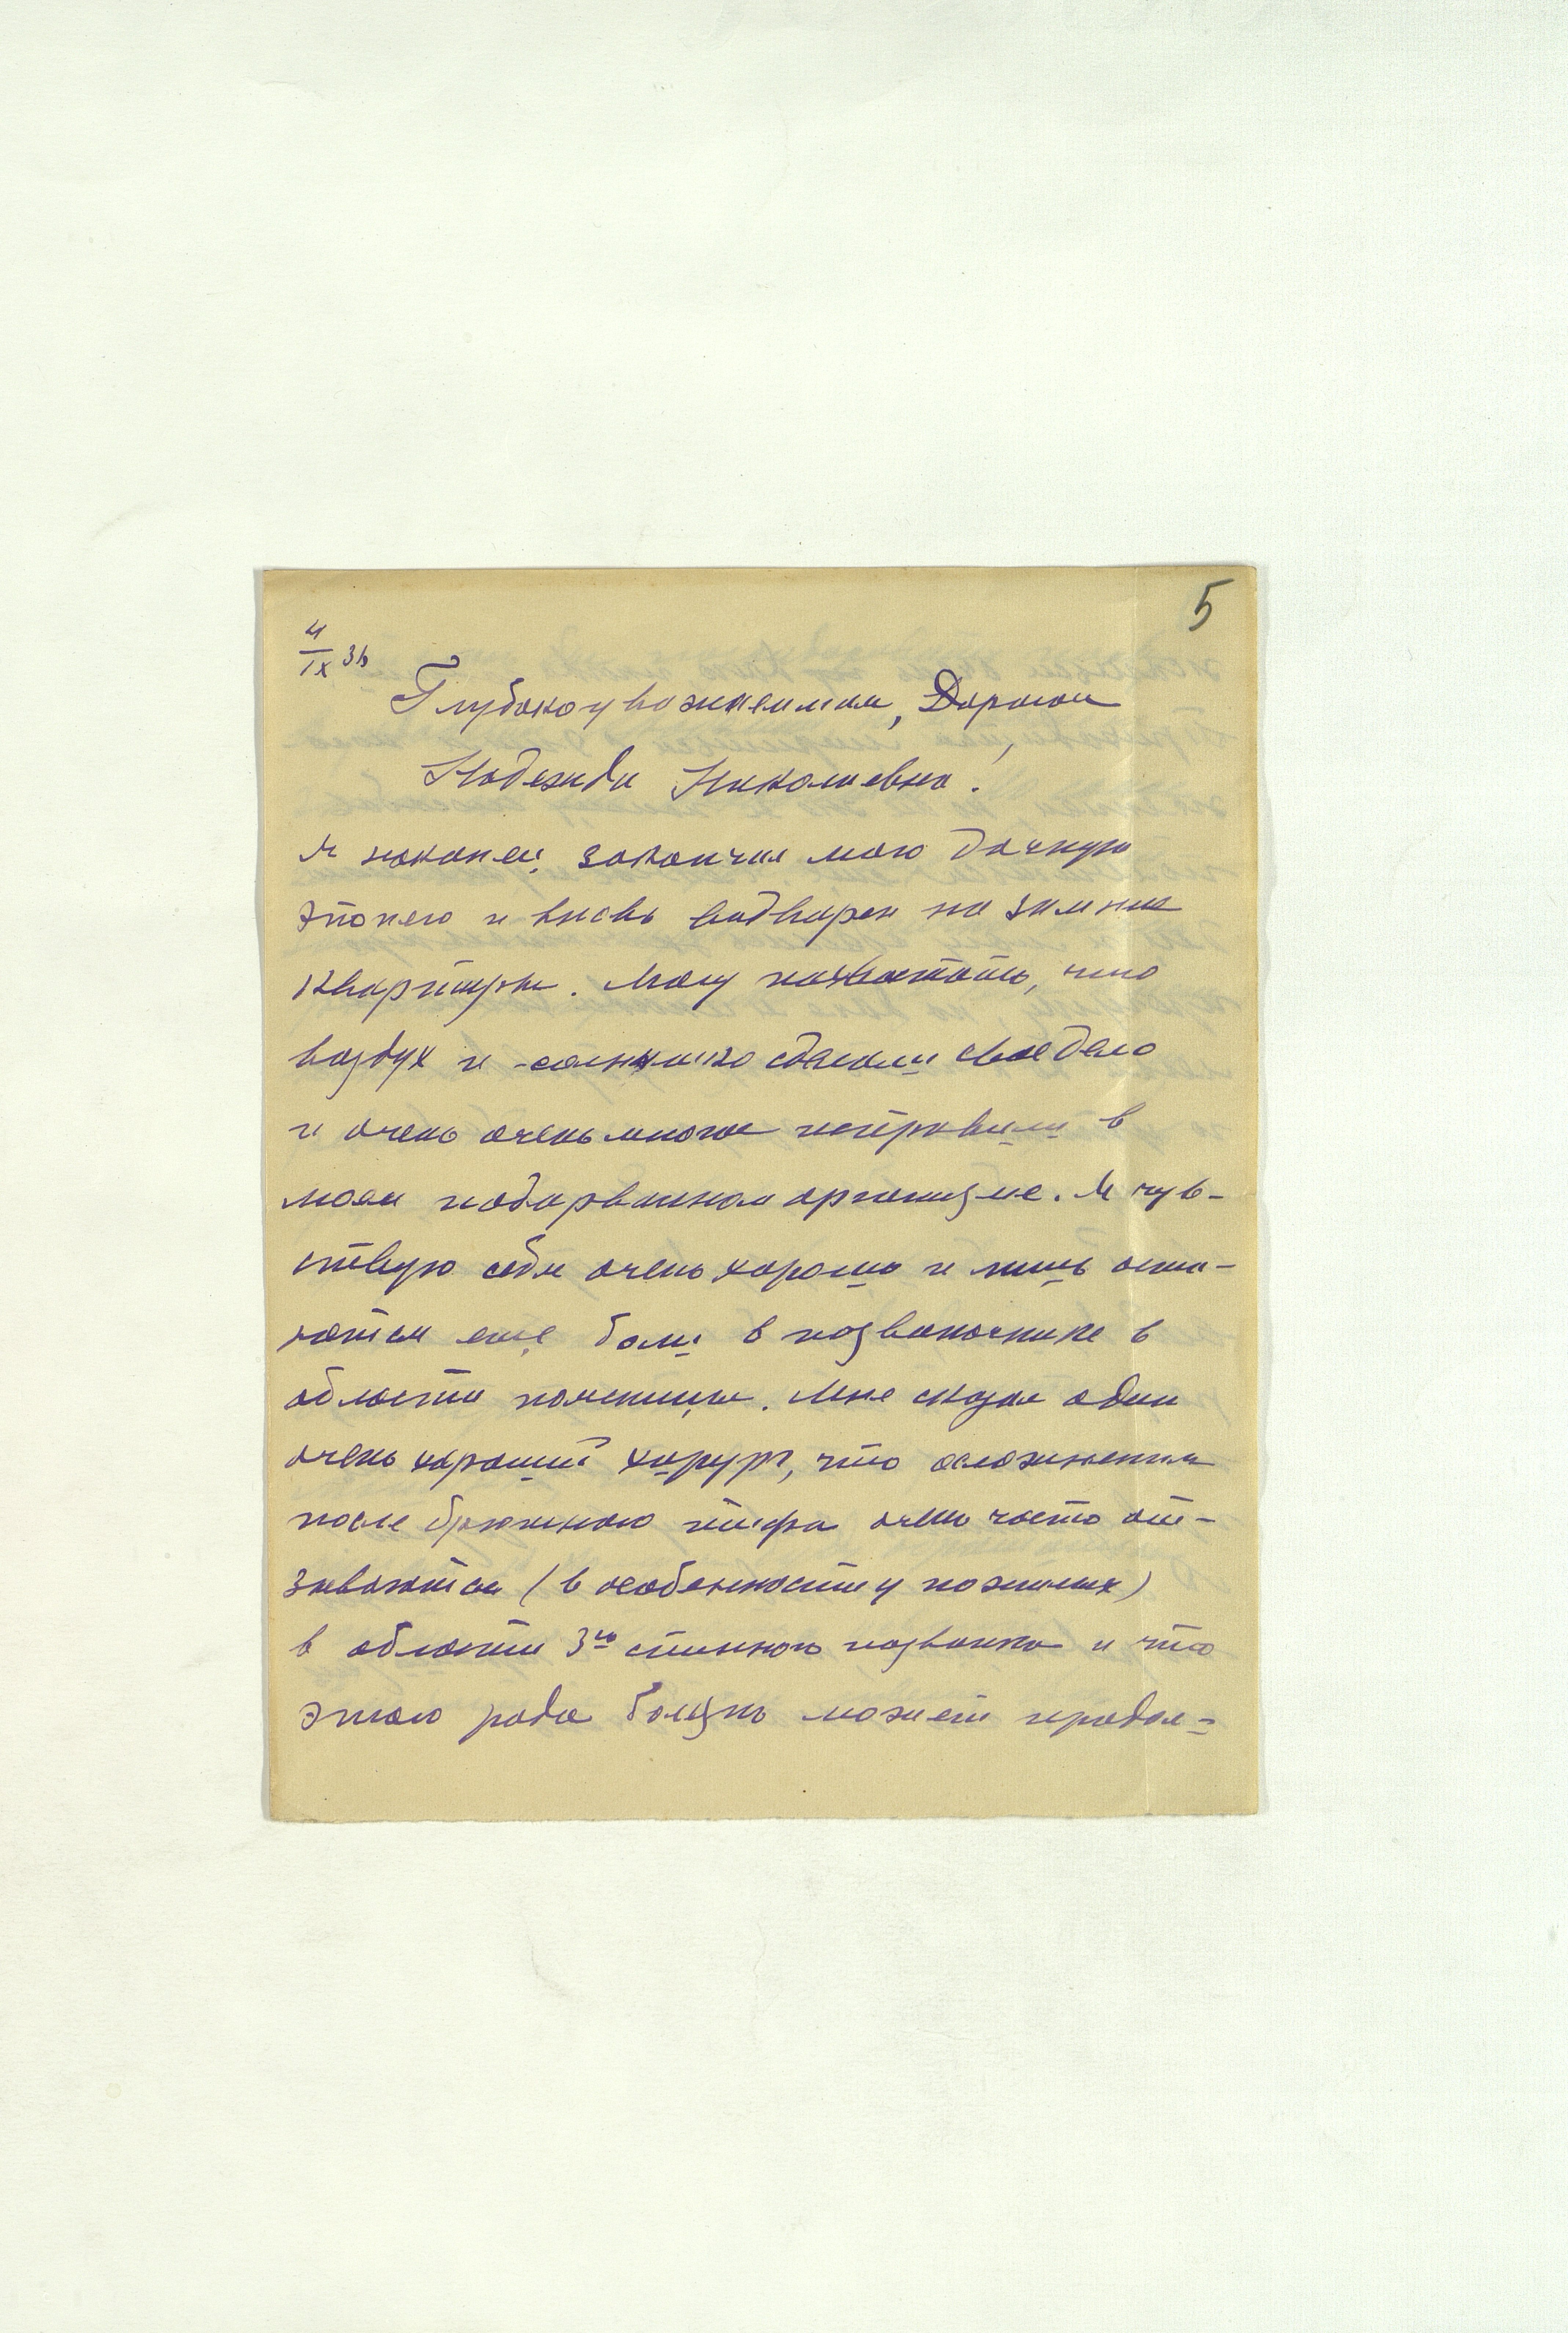 5
4/IX 36
Глубокоуважаемая, Дорогая
Надежда Николаевна!
Я наконец закончил мою дачную
эпопею и вновь водворен на зимния
квартиры. Могу похвастать, что
воздух и солнышко сделали свое дело
и очень очень многое исправили в
моем подорванном организме. Я чув-
ствую себя очень хорошо и лишь оста-
ются еще боли в позвоночнике в
области поясницы. Мне сказал один
очень хороший хирург, что осложнения
после брюшного тифа очень часто от-
зываются (в особенности у пожилых)
в области 3го спинного позвонка и что
этого рода болезнь может продол-